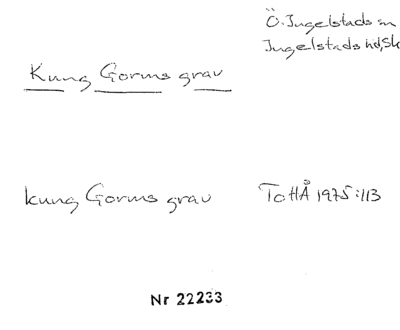 Ö. Ingelstads sn
Ingelstads hd, Sk
Kung Gorms grav
kung Gorms grav
ToHÅ 1975:113
Nr 22233